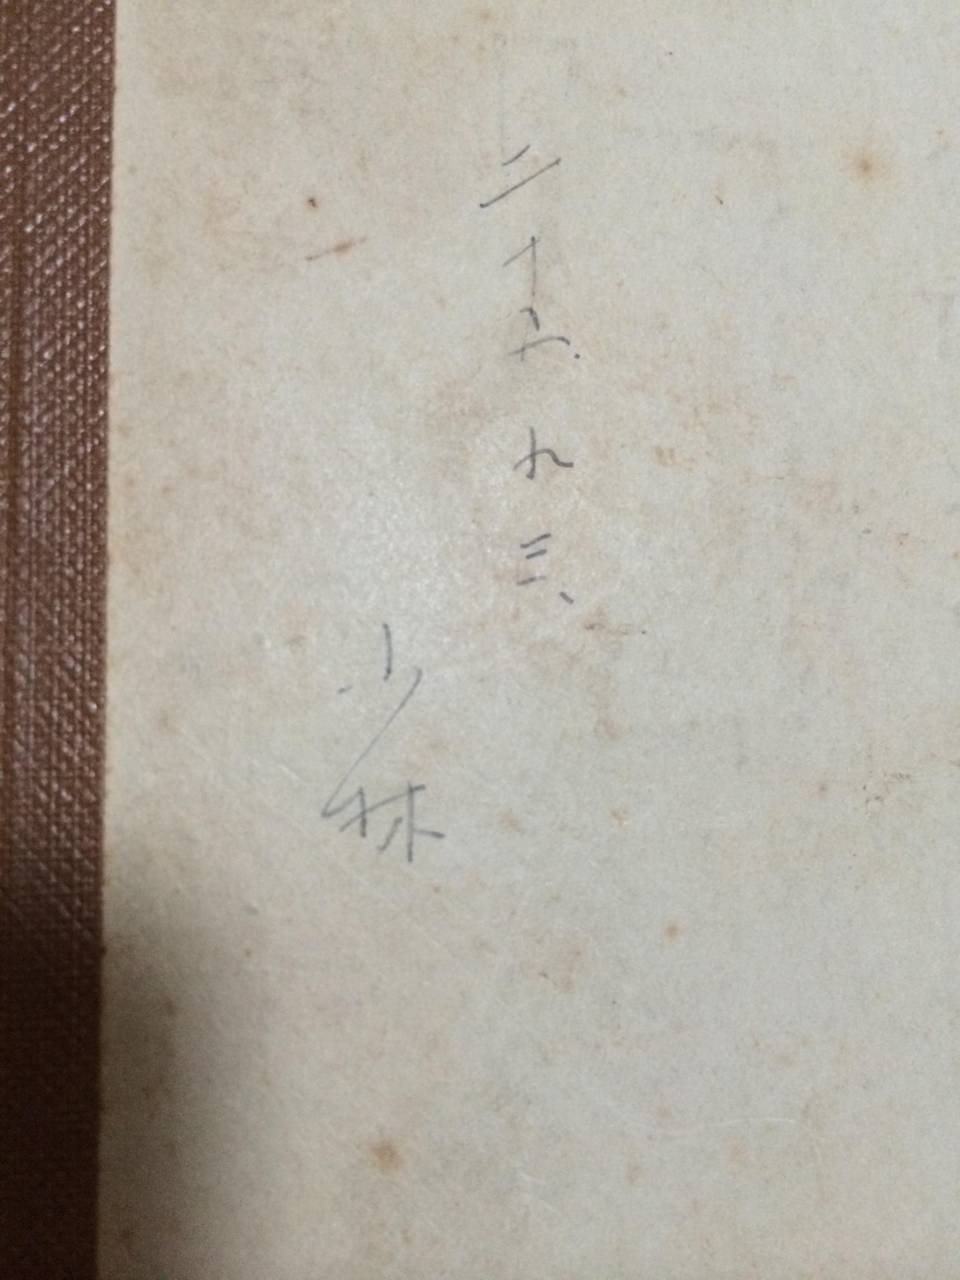 二十五.九三、
少林